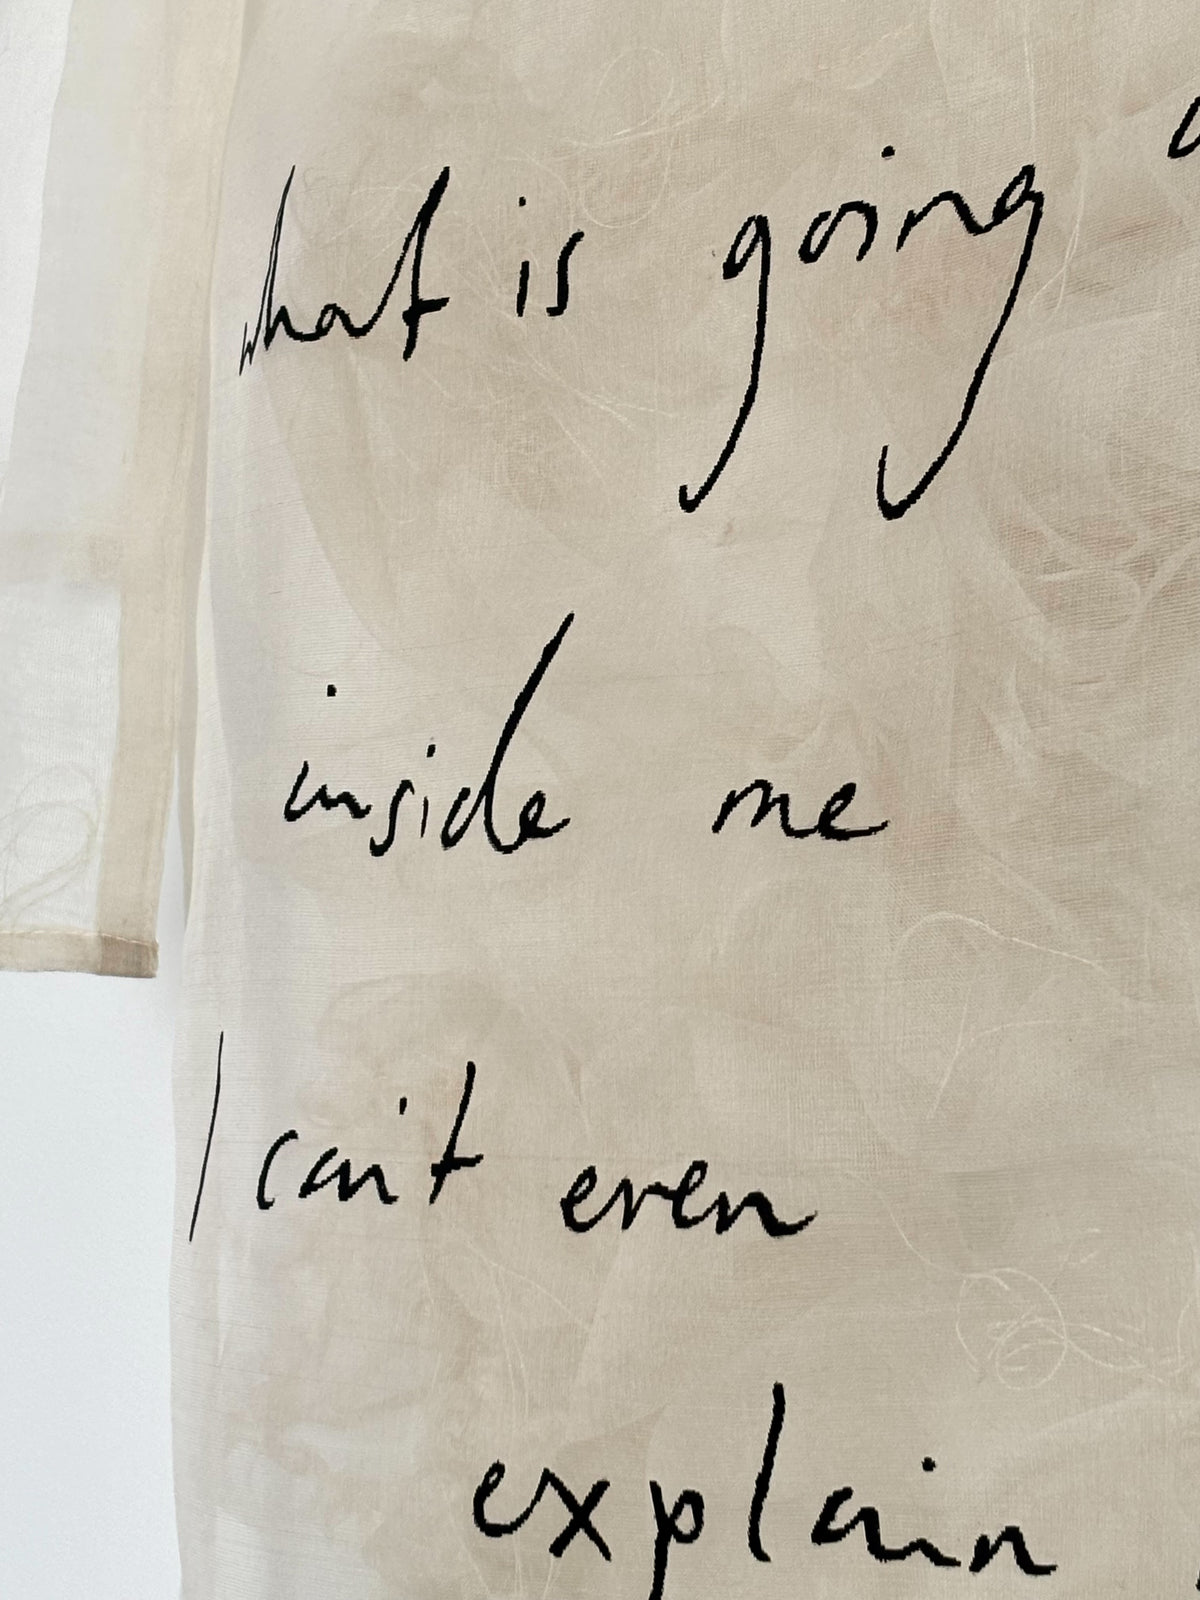 what is going
inside me
I can't even
explain